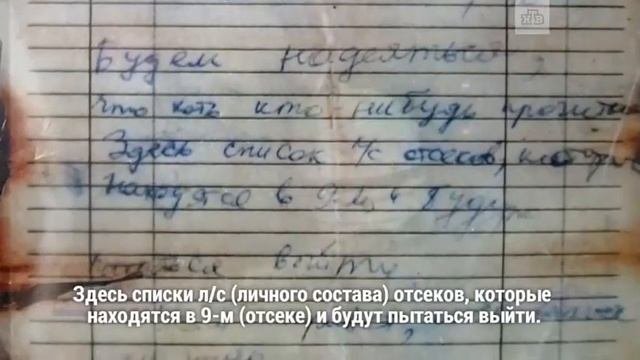 НТВ
Будем надеяться,
что хоть кто-нибудь прочита
Здесь список л/с отсеков, котор
находятся в 9-м и будут
выйти.
Здесь списки л/с (личного состава) отсеков, которые
находятся в 9-м (отсеке) и будут пытаться выйти.